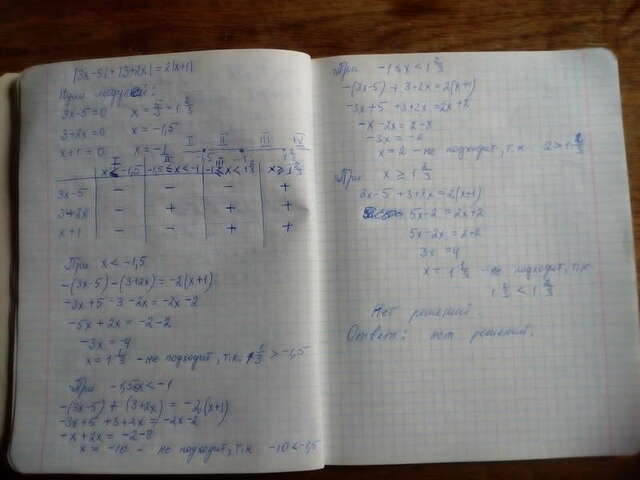 |3x-5|+|3+2x|=2|x+1|
Нули модулей:
3x-5=0 x=5/3=1 2/3
3+2x=0 x=-1,5
x+1=0 x=-1
I II III IV
-1,5 -1 1 2/3
I II III
x<-1,5 -1,5≤x<-1 -1≤x<1 2/3 x≥1 2/3
3x-5 - - - +
3+2x - + + +
x+1 - - + +
При x<-1,5
-(3x-5)-(3+2x)=-2(x+1)
-3x+5-3-2x=-2x-2
-5x+2x=-2-2
-3x=-4
x=1 1/3 - не подходит, т.к. 1 1/3>-1,5
При -1,5≤x<-1
-(3x-5)+(3+2x)=-2(x+1)
-3x+5+3+2x=-2x-2
-x+2x=-2-8
x=-10 - не подходит, т.к -10<-1,5
При -1≤x<1 2/3
-(3x-5)+3+2x=2(x+1)
-3x+5+3+2x=2x+2
-x-2x=2-8
-3x=-6
x=2 - не подходит, т.к 2>1 2/3
При x≥1 2/3
3x-5+3+2x=2(x+1)
5x-2=2x+2
5x-2x=2+2
3x=4
x=1 1/3 - не подходит, т.к
1 1/3<1 2/3
Нет решений
Ответ: нет решений.